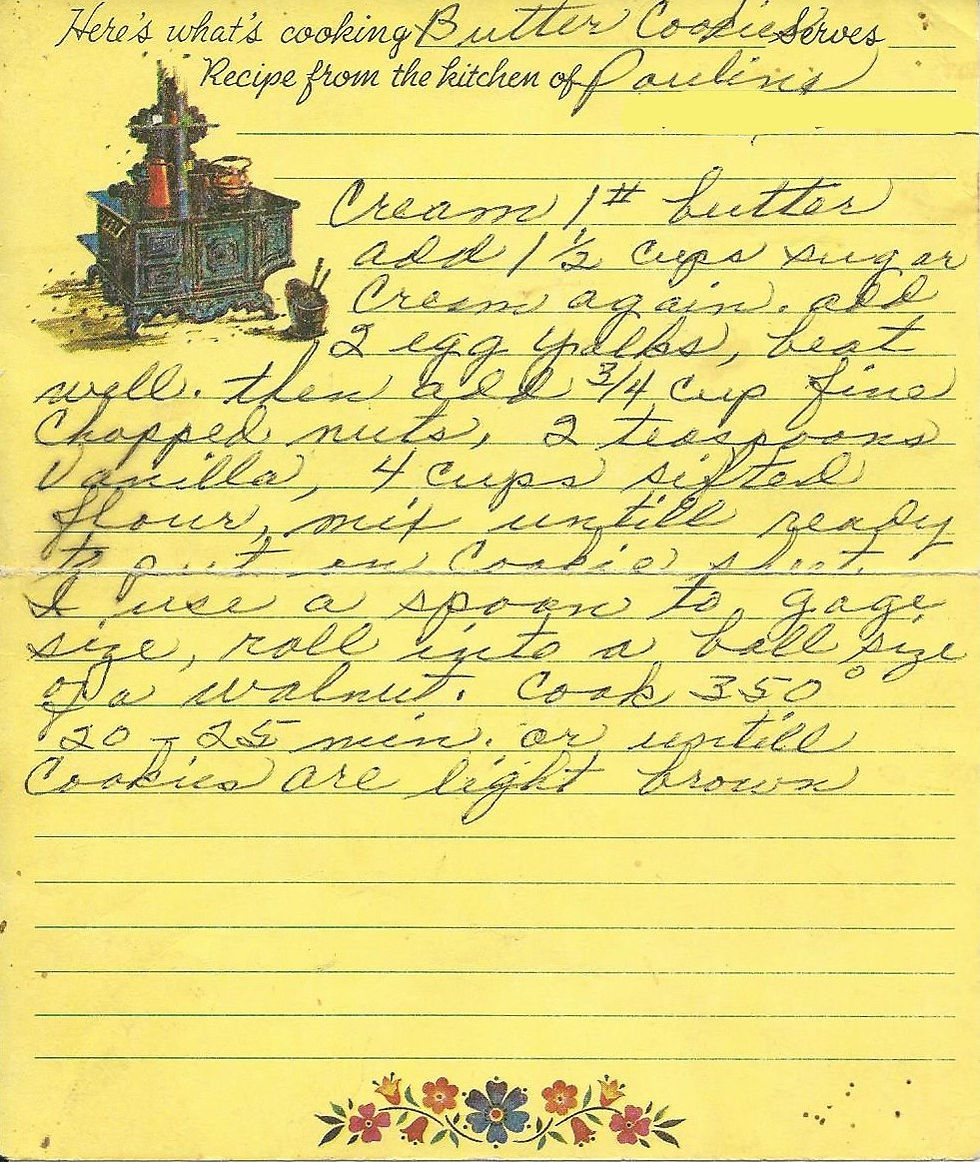 Here's what's cooking Butter Cookies Serves
Recipe from the kitchen of Pauline
Cream 1# butter
add 1 1/2 cups sugar
Cream again. add
2 egg yolks, beat
well. then add 3/4 cup fine
Chopped nuts, 2 teaspoons
Vanilla, 4 cups sifted
flour, mix untill ready
to put on Cookie sheet.
I use a spoon to gage
size, roll into a ball size
of a walnut. Cook 350°
20 - 25 min. or untill
Cookies are light brown